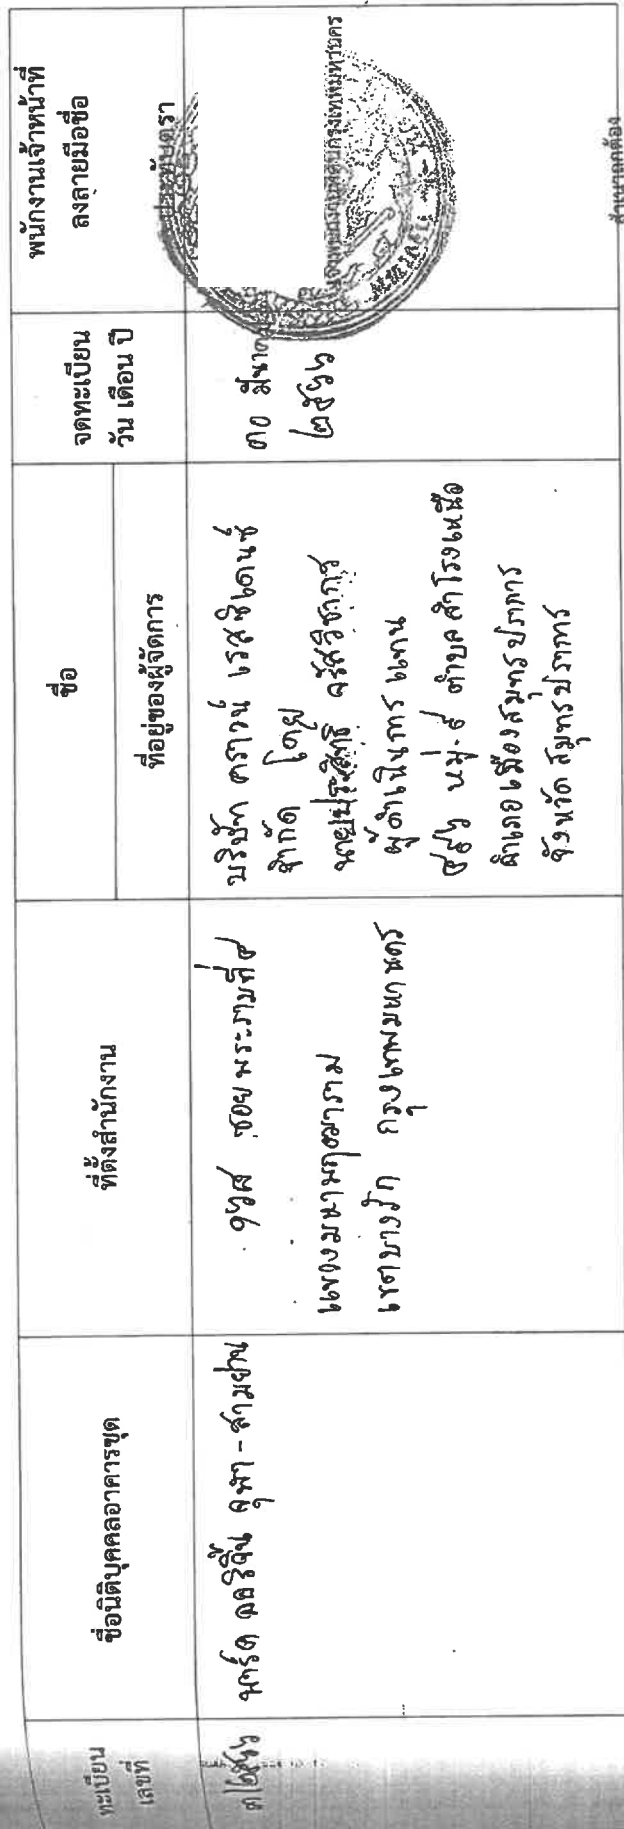 ทะเบียน
เลขที่
ชื่อนิติบุคคลอาคารชุด
ที่ตั้งสำนักงาน
ชื่อ
ที่อยู่ของผู้จัดการ
จดทะเบียน
วัน เดือน ปี
พนักงานเจ้าหน้าที่
ลงลายมือชื่อ
๓/๒๕๖๖
พาร์ค ออริจิ้น จุฬา - สามย่าน
๑๖๙ ซอยพระรามที่ ๔
แขวงมหาพฤฒาราม
เขตบางรัก กรุงเทพมหานคร
บริษัท คราวน์ เรสซิเดนซ์
จำกัด โดย
นายประสิทธิ์
ผู้ดำเนินการแทน
๕๕๖ หมู่ ๕ ตำบลสำโรงเหนือ
อำเภอเมืองสมุทรปราการ
จังหวัดสมุทรปราการ
๓๐ มีนาคม
๒๕๖๖
ประทับตรา
กรุงเทพมหานคร
สำเนาถูกต้อง